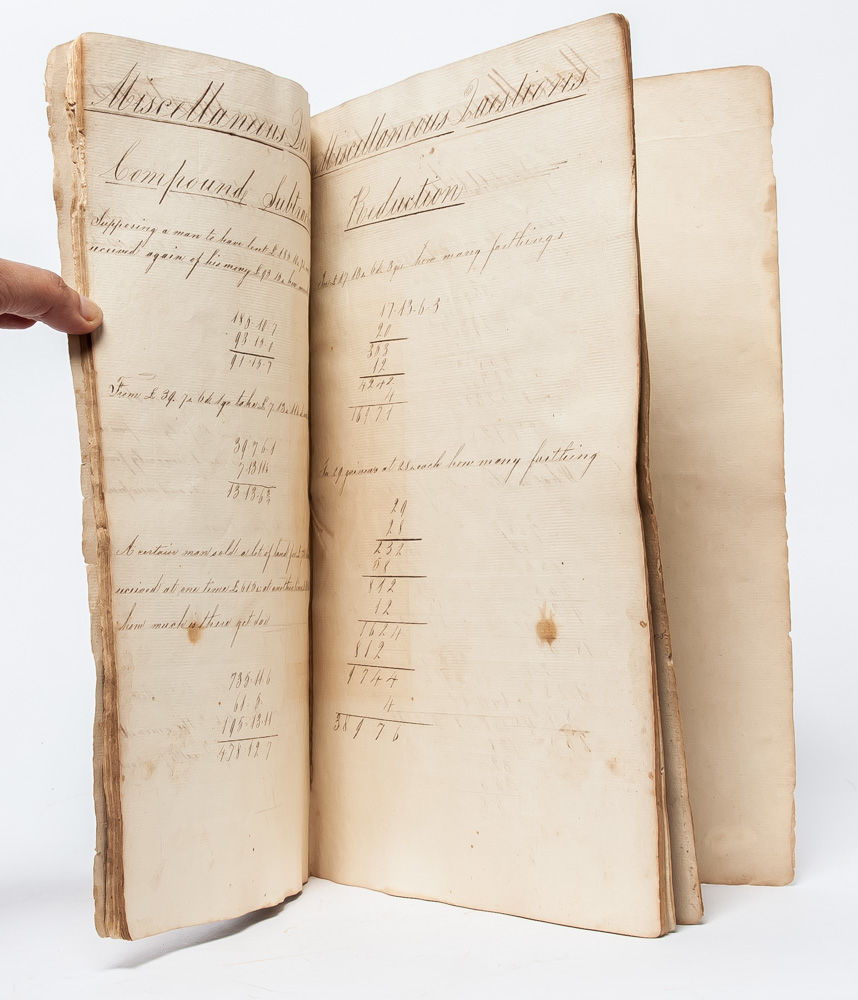 Miscellaneous
Compound Subtrac
Supposing a man to have lent £ 185
received again of his mony £ 93 15s how
185-10-7
93-15-0
91-15-7
From £ 39. 7s 6d 1qr take £ 7 13s 11d
39 7 6 1
7 13 11
A certain man sold a lot of land for £
received at one time £ 61 5s at another time
how much is there yet due
735-11-6
61-5-
195-13-11
478-12-7
Miscellaneous Questions
Reduction
In £ 17 13s 6d 3qr how many farthings
17-13-6-3
20
353
12
4242
4
16971
In 29 guineas at 28s each how many farthing
29
28
232
58
812
12
1624
812
9744
4
38976